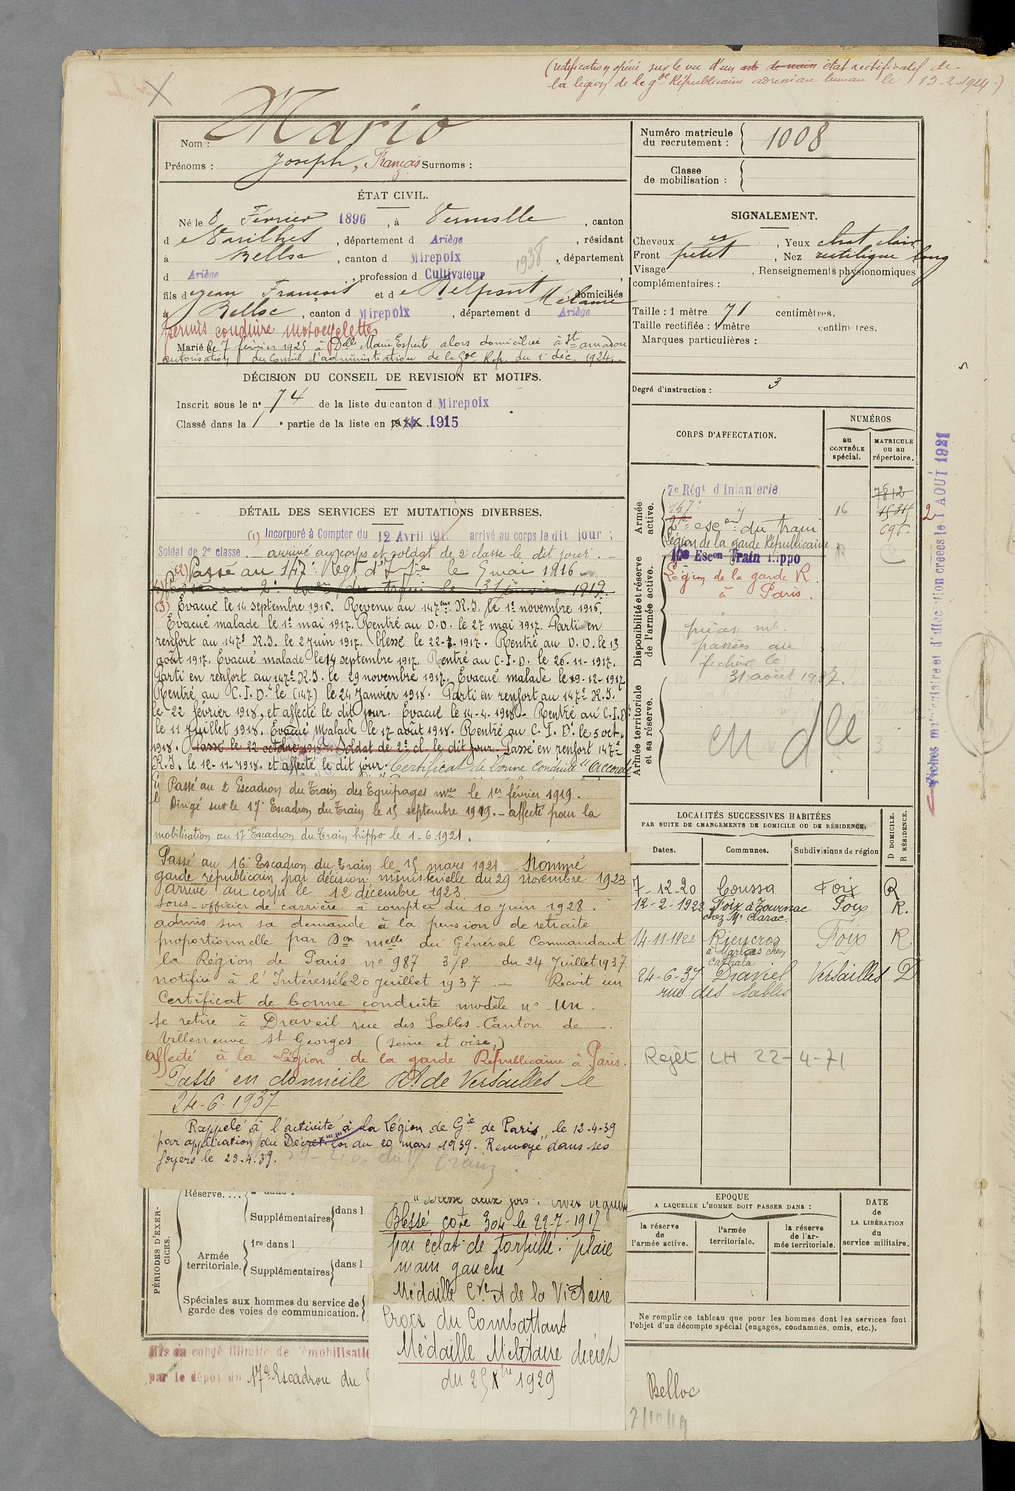 (rectification opérée sur le vu d'un état rectificatif de
la légion de la gde Républicaine le 13-2-1924.)
Nom : Mario
Prénoms : Joseph, François Surnoms :
Numéro matricule
du recrutement : 1008
Classe
de mobilisation :
ÉTAT CIVIL.
Né le 8 Février 1896, à Vernuelle, canton
de Varilhes, département d Ariège, résidant
à Belloc, canton d Mirepoix, département
1938
d Ariège, profession d Cultivateur
fils de Jean François et de Delpont Mélanie domiciliés
à Belloc, canton d Mirepoix, département d Ariège
permis conduire motocyclettes
Marié le 7 février 1925 à Dlle Marie Esperte alors domiciliée à St amadou
autorisation du Conseil d'administration de la Gde Rep. du 1er déc. 1924.
SIGNALEMENT.
Cheveux , Yeux chat clair
Front petit , Nez rectiligne long
Visage , Renseignements physionomiques
complémentaires :
Taille : 1 mètre 71 centimètres.
Taille rectifiée : 1 mètre centimètres.
Marques particulières :
Degré d'instruction : 3
DÉCISION DU CONSEIL DE REVISION ET MOTIFS.
Inscrit sous le n° 74 de la liste du canton d Mirepoix
Classé dans la 1e partie de la liste en 1915
CORPS D'AFFECTATION.
NUMÉROS
au
CONTRÔLE
spécial.
MATRICULE
ou au
répertoire.
Armée
active.
7e Régt d'Infanterie 7812
147e 16
esc. du train 695
Légion de la garde Républicaine
Disponibilité et réserve
de l'armée active.
16e Escon Train Hippo
Légion de la garde R.
à Paris.
passées au
fichier le
31 août 1937.
Armée territoriale
et sa réserve.
en dle
Fiches matriculaire et d'affectation créées le 1 AOUT 1921
2
DÉTAIL DES SERVICES ET MUTATIONS DIVERSES.
(1) Incorporé à Compter du 12 Avril 191 arrivé au corps le dit jour ;
Soldat de 2e classe. arrivé au corps et soldat de 2e classe le dit jour.
(2) Passé au 147e Regt d'Infie le 5 mai 1916
Passé au 2e escon du train le 1919.
(3) Évacué le 14 septembre 1916. Revenu au 147ème R.I. le 1er novembre 1916.
Évacué malade le 1er mai 1917. Rentré au D.D. le 27 mai 1917. Parti en
renfort au 147e R.I. le 2 juin 1917. blessé le 22-7-1917. Rentré au D.D. le 13
août 1917. Évacué malade le 14 septembre 1917. Rentré au C.I.D. le 26-11-1917.
Parti en renfort au 147e R.I. le 29 novembre 1917. Évacué malade le 19-12-1917
Rentré au C.I.D. le (147) le 24 Janvier 1918. Parti en renfort au 147e R.I.
le 22 février 1918, et affecté le dit jour. Évacué le 14-4-1918. Rentré au C.I.D.
le 11 juillet 1918. Évacué malade le 17 août 1918. Rentré au C.I.D. le 5 oct.
1918. Passé le 22 octobre 1918. Soldat de 2e cl. le dit jour. Passé en renfort 147e
R.I. le 12-11-1918. et affecté le dit jour. Certificat de bonne conduite "Accordé
Passé au 2 Escadron du Train des Equipages mres le 1er février 1919.
Dirigé sur le 17e Escadron du Train le 15 septembre 1919. - affecté pour la
mobilisation au 17 Escadron du Train hippo le 1.6.1921.
Passé au 16e Escadron du Train le 15 mars 1921. Nommé
garde républicain par décision ministérielle du 29 novembre 1923
arrivé au corps le 12 décembre 1923
Sous-officier de carrière à compter du 10 juin 1928.
admis sur sa demande à la pension de retraite
proportionnelle par Don melle du Général Commandant
la Région de Paris n° 987 3/P. du 24 Juillet 1937
notifiée à l'Intéressé le 20 juillet 1937 — Reçoit un
Certificat de bonne conduite modèle n° un.
Se retire à Draveil rue des Sables. Canton de
Villeneuve St Georges (Seine et oise)
affecté à la Légion de la garde Républicaine à Paris.
Passé en domicile Rt de Versailles le
24-6-1937
Rappelé à l'activité à la Légion de Gie de Paris, le 12-4-39
par application du Décret-loi du 20 mars 1939. Renvoyé dans ses
foyers le 23-4-39.
LOCALITÉS SUCCESSIVES HABITÉES
PAR SUITE DE CHANGEMENTS DE DOMICILE OU DE RÉSIDENCE.
Dates. Communes. Subdivisions de région
D DOMICILE.
R RÉSIDENCE.
7-12-20 Coussa Foix R
12-2-1922 Foix Foix R.
chez Mr Clarac.
14-11-1922 Rieucros Foix R
24-6-37 Draveil Versailles D
rue des Sables
Rejet LH 22-4-71
PÉRIODES D'EXERCICES.
Réserve....
Supplémentaires dans l
Armée
territoriale.
1re dans l
Supplémentaires dans l
Spéciales aux hommes du service de
garde des voies de communication.
Blessé deux fois.
Blessé cote 304 le 22-7-1917
par éclat de torpille : plaie
main gauche
Médaille Cve et de la Victoire
Croix du Combattant
Médaille Militaire décret
du 25 Xbre 1929
EPOQUE
A LAQUELLE L'HOMME DOIT PASSER DANS :
la réserve
de
l'armée active.
l'armée
territoriale.
la réserve
de l'ar-
mée territoriale.
DATE
de
LA LIBÉRATION
du
service militaire.
Ne remplir ce tableau que pour les hommes dont les services font
l'objet d'un décompte spécial (engagés, condamnés, omis, etc.).
Mis en congé illimité de démobilisation
par le dépôt du 17e Escadron du
Belloc
7/10/19